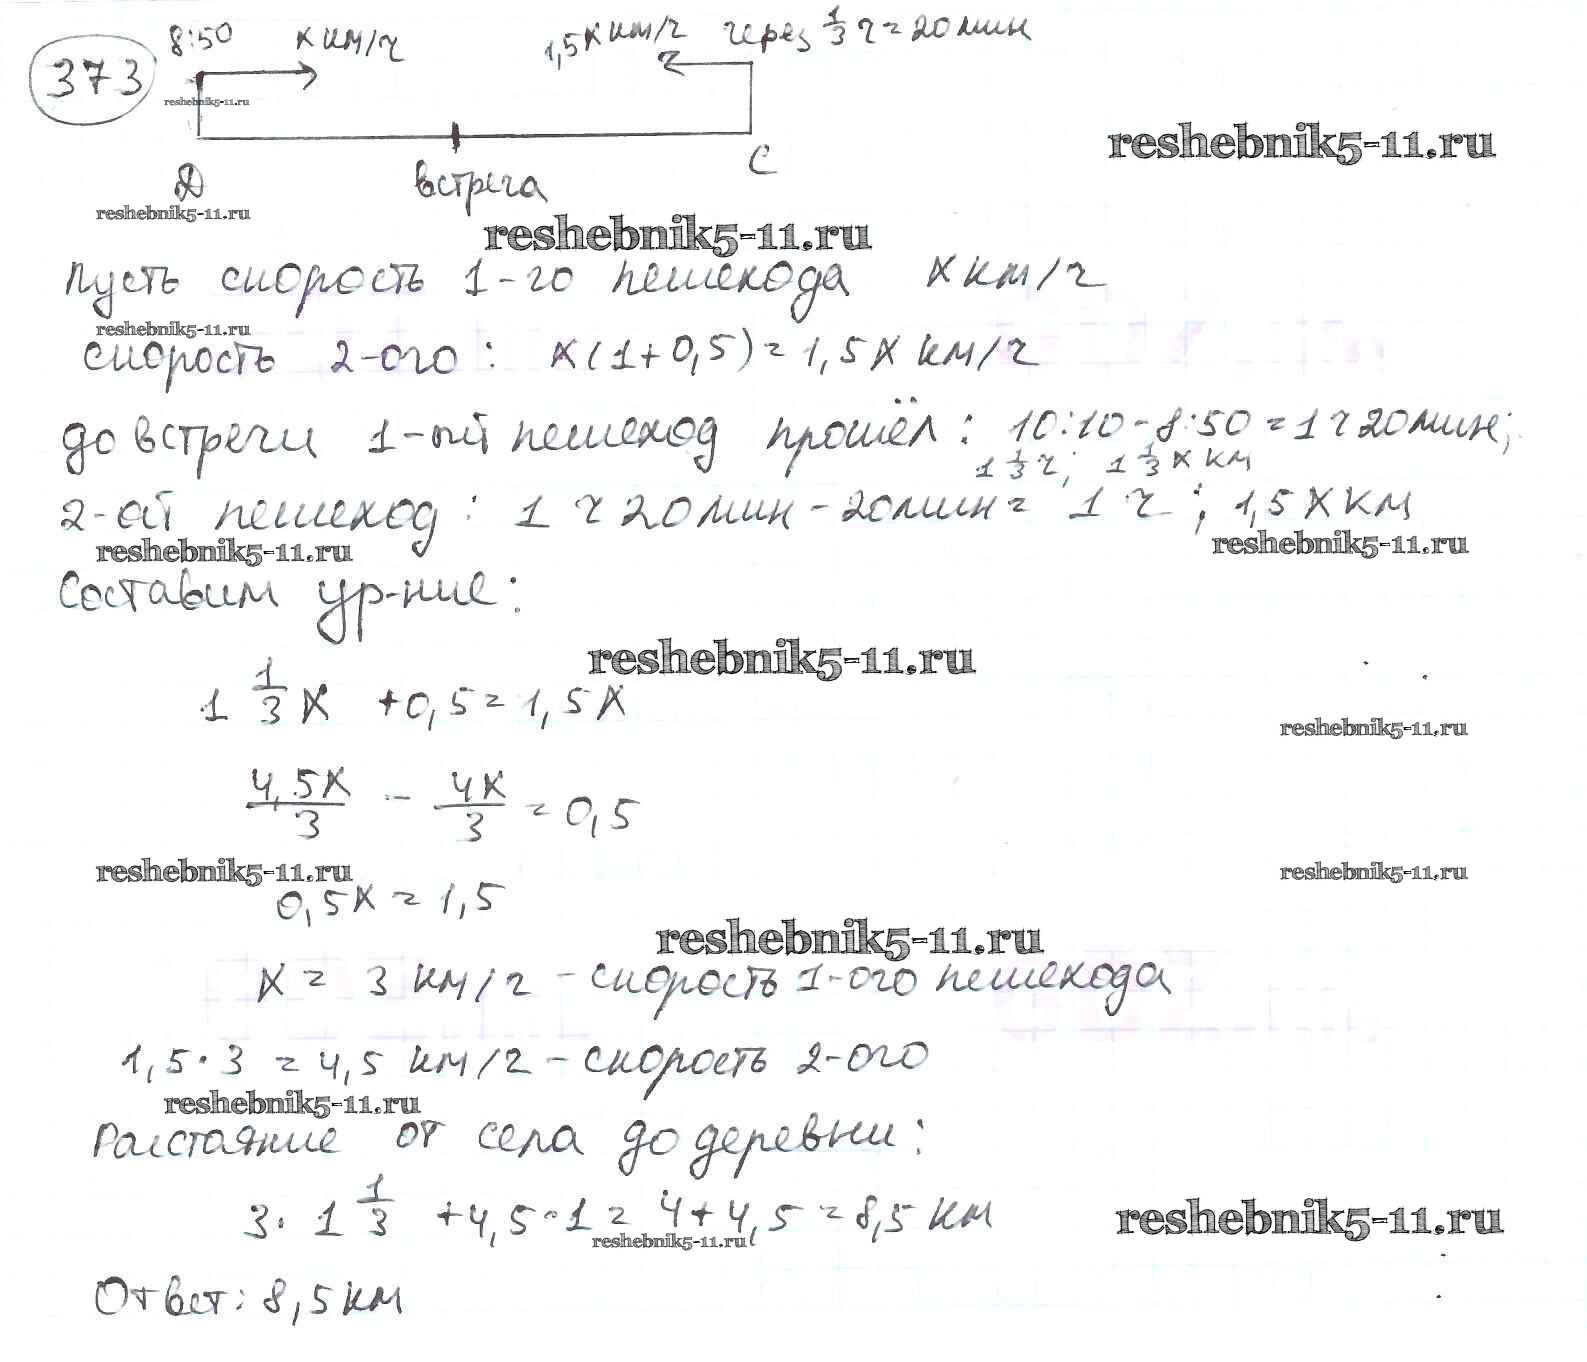 373 8:50 x км/ч 1,5x км/ч через 1/3 ч = 20 мин
reshebnik5-11.ru
reshebnik5-11.ru
Д встреча С
reshebnik5-11.ru
reshebnik5-11.ru
Пусть скорость 1-го пешехода x км/ч
reshebnik5-11.ru
скорость 2-ого: x(1+0,5)=1,5x км/ч
до встречи 1-ый пешеход прошёл: 10:10-8:50=1ч20мин;
1 1/3 ч; 1 1/3 x км
2-ой пешеход: 1ч20мин-20мин= 1ч; 1,5x км
reshebnik5-11.ru reshebnik5-11.ru
Составим ур-ние:
reshebnik5-11.ru
1 1/3 x +0,5=1,5x
reshebnik5-11.ru
4,5x/3 - 4x/3 = 0,5
reshebnik5-11.ru reshebnik5-11.ru
0,5x = 1,5
reshebnik5-11.ru
x = 3 км/ч - скорость 1-ого пешехода
1,5·3 = 4,5 км/ч - скорость 2-ого
reshebnik5-11.ru
Расстояние от села до деревни:
3· 1 1/3 +4,5·1= 4+4,5=8,5 км
reshebnik5-11.ru
reshebnik5-11.ru
Ответ: 8,5 км